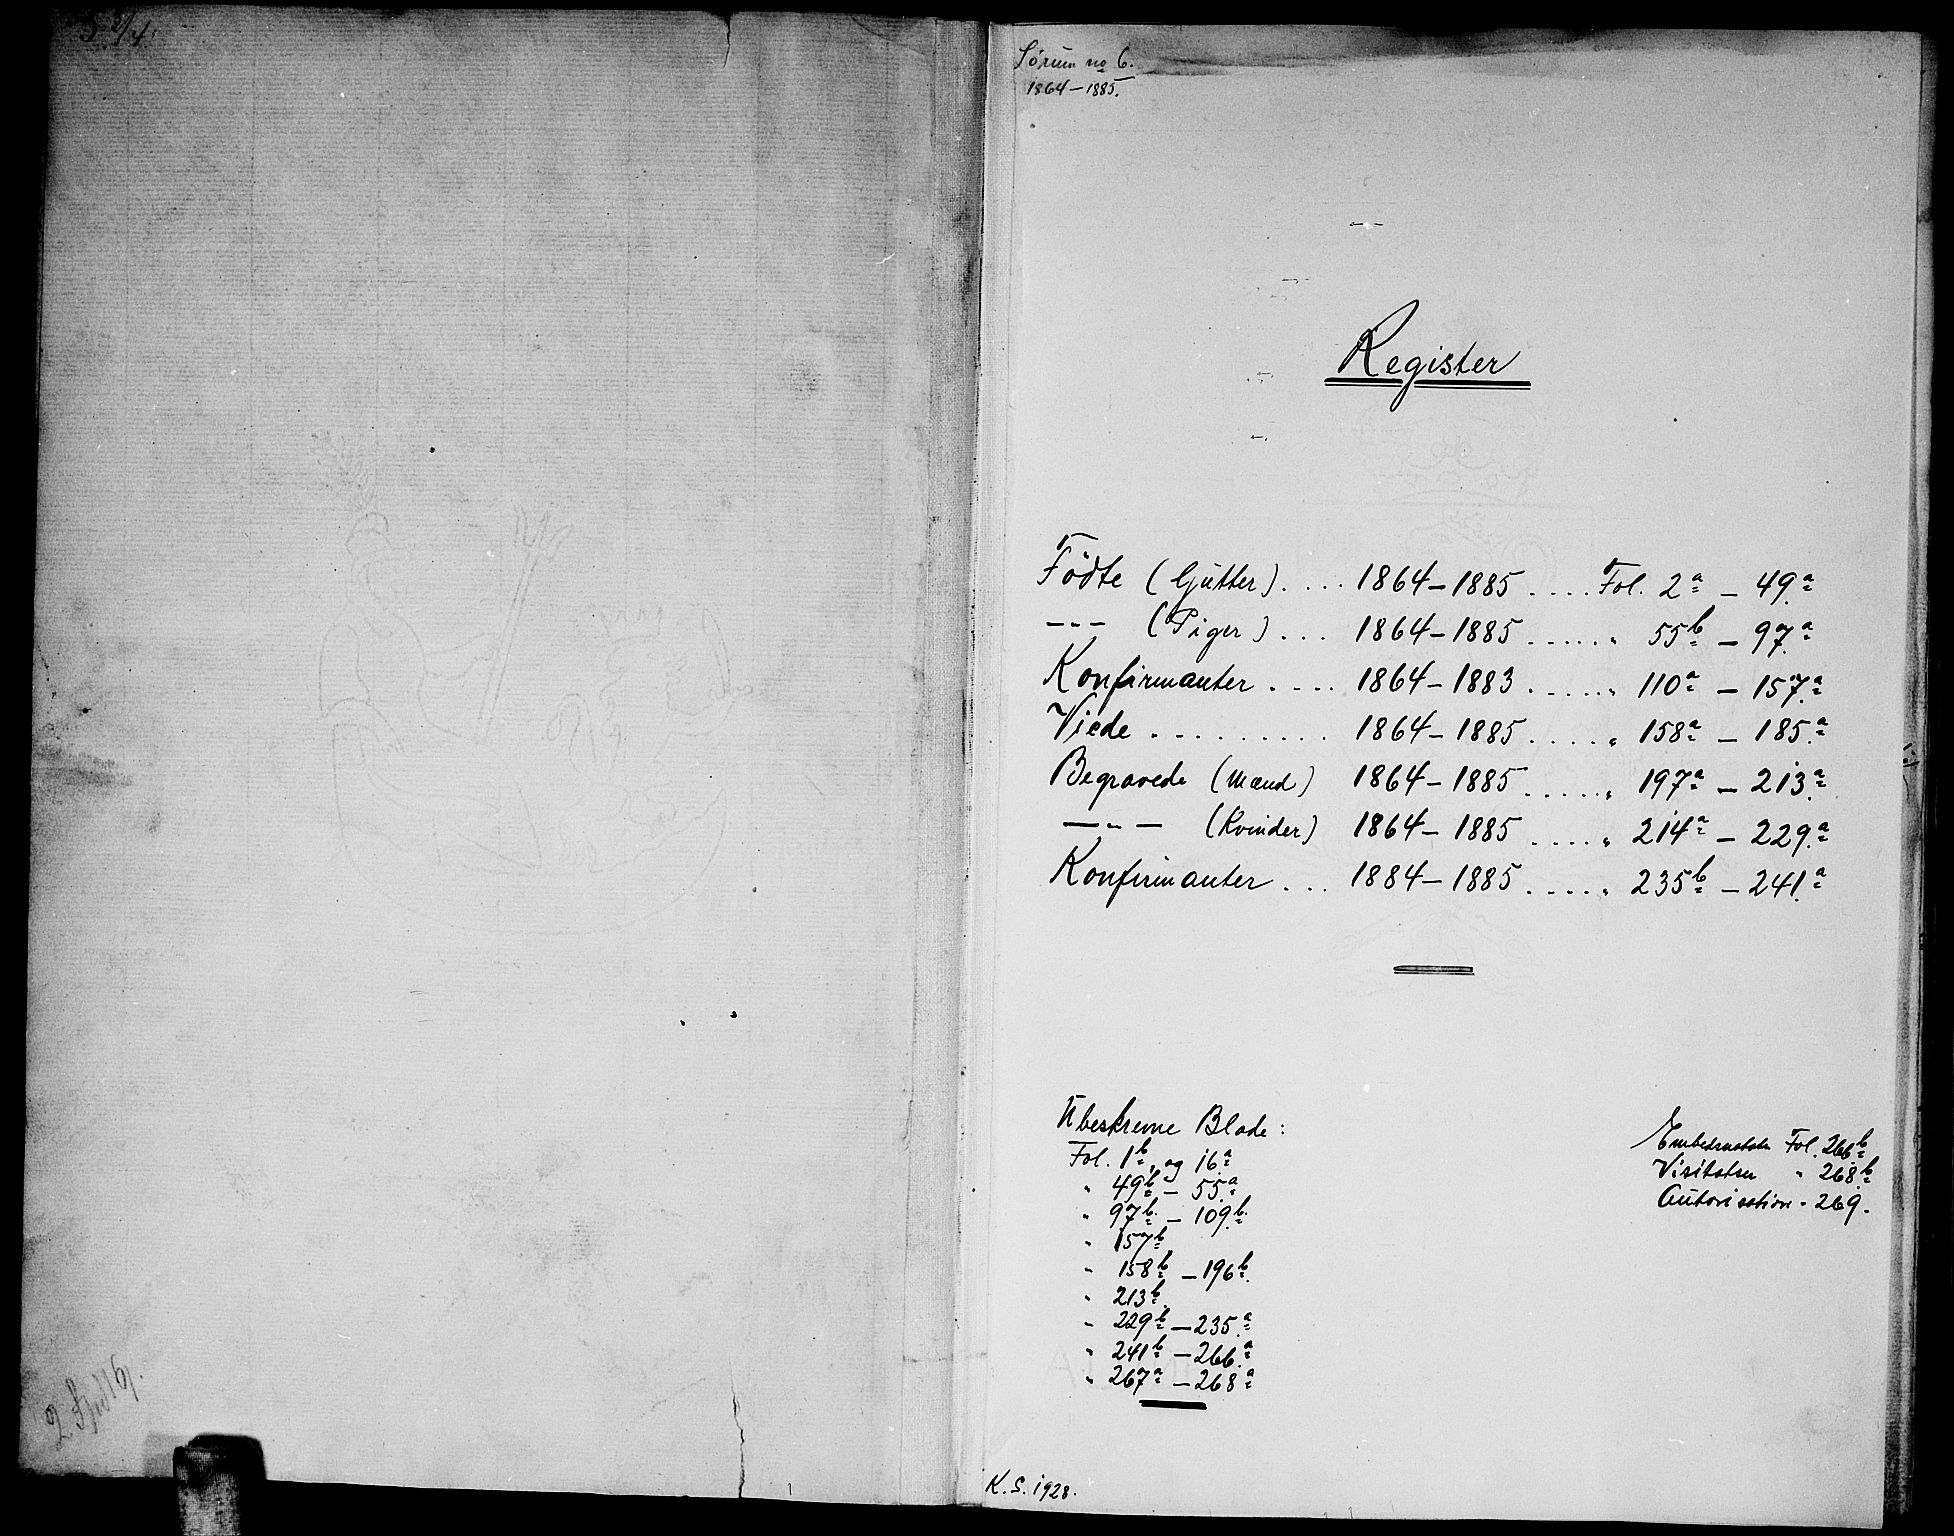 Sørum no 6.
1864-1885.
Register
Födte (Gjutter).... 1864-1885 .... Fol. 2a - 49.a
-"- (Piger)... 1864-1885 ..... " 55b - 97.a
Konfirmanter .... 1864-1883 ..... " 110a - 157.a
Viede ......... 1864-1885 .... " 158a - 185.a
Begravede (Mænd) 1864-1885 ..... " 197a - 213.a
-"- (Kvinder) 1864-1885 .... " 214a - 229.a
Konfirmanter ... 1884-1885 ..... " 235b - 241.a
Ubeskrevne Blade:
Fol. 1b, og 16.a
" 49b - 55.a
" 97b - 109.b
" 157b
" 158b - 196b.
" 213b.
" 229b - 235.a
" 241b - 266.a
" 267a - 268a
Embedsattester Fol. 266b
Visitatser " 268.b
Autorisation " 269.
K. S. 1928.